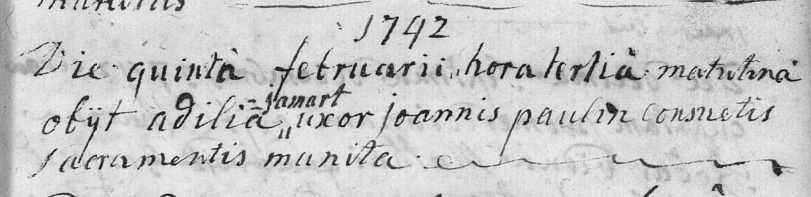 1742
Die quintâ februarii hora tertiâ matutinâ
jamart
obÿt adiliâ uxor joannis paulin consuetis
sacramentis munita